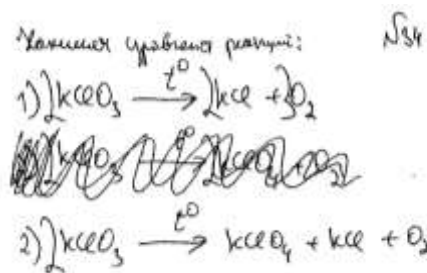 Запишем уравнения реакций: №34
1) 2KClO₃ t⁰→ 2KCl + 3O₂
2) 2KClO₃ t⁰→ KClO₄ + KCl + O₂